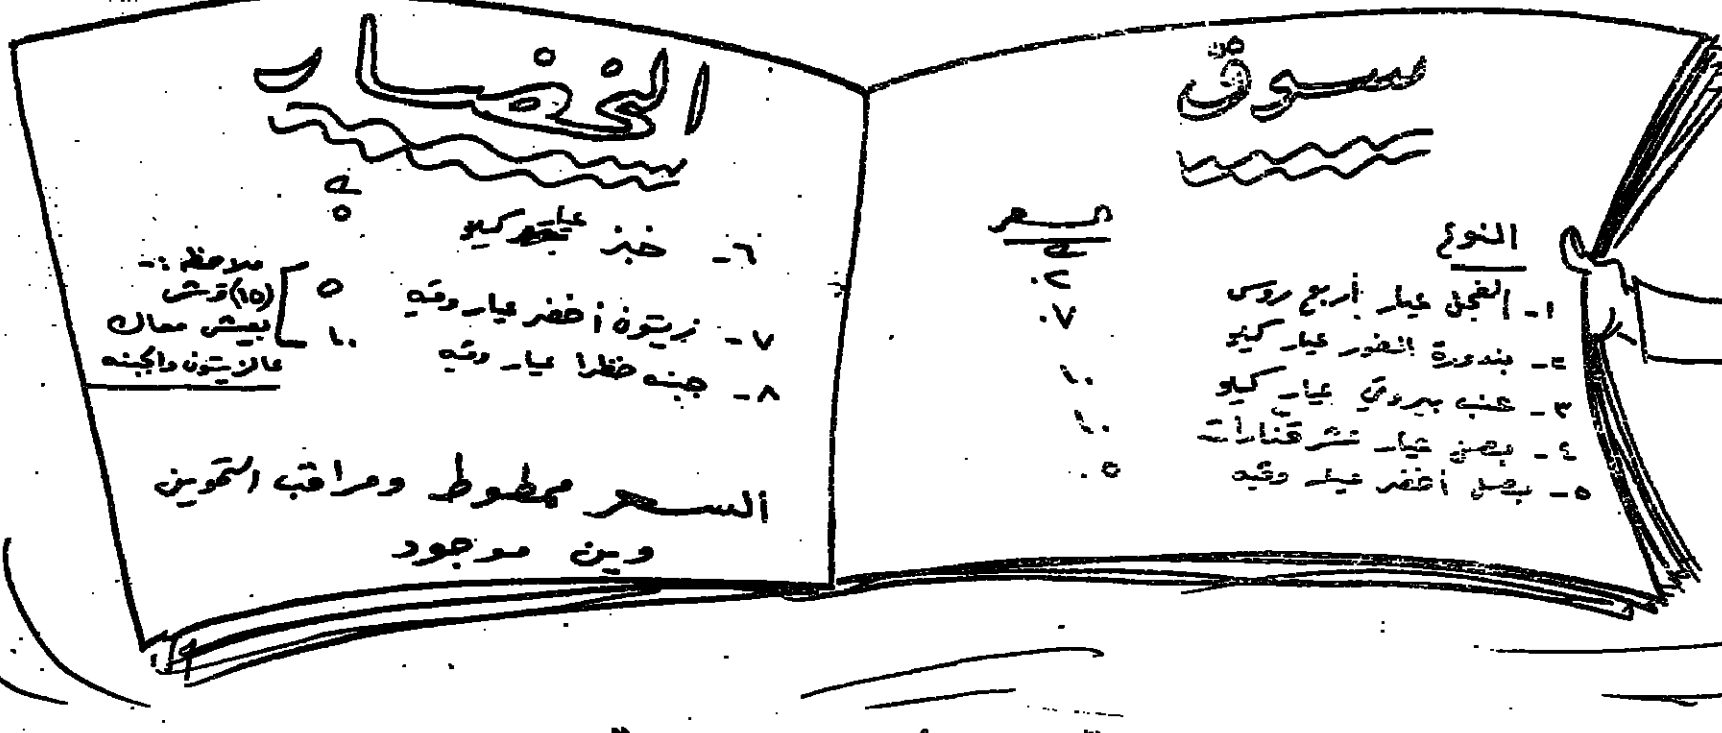 سوق
النوع السعر
١ - الفجل عيار أربع روس ٠٢
٢ - بندورة عيار كيلو ٠٧
٣ - عنب بيروتي عيار كيلو ١٠
٤ - بصل عيار عشر قنارات ١٠
٥ - بصل أخضر عيار وقيه ٠٥
الخضار
٦ - خبز عيار كيلو ٥
٧ - زيتون أخضر عيار وقيه ٥
٨ - جبنه خظرا عيار وقيه ١٠
ملاحظه :-
(١٥) قرش
بعيش معاك
عالزيتون والجبنه
السعر ممطوط ومراقب التموين
وين موجود